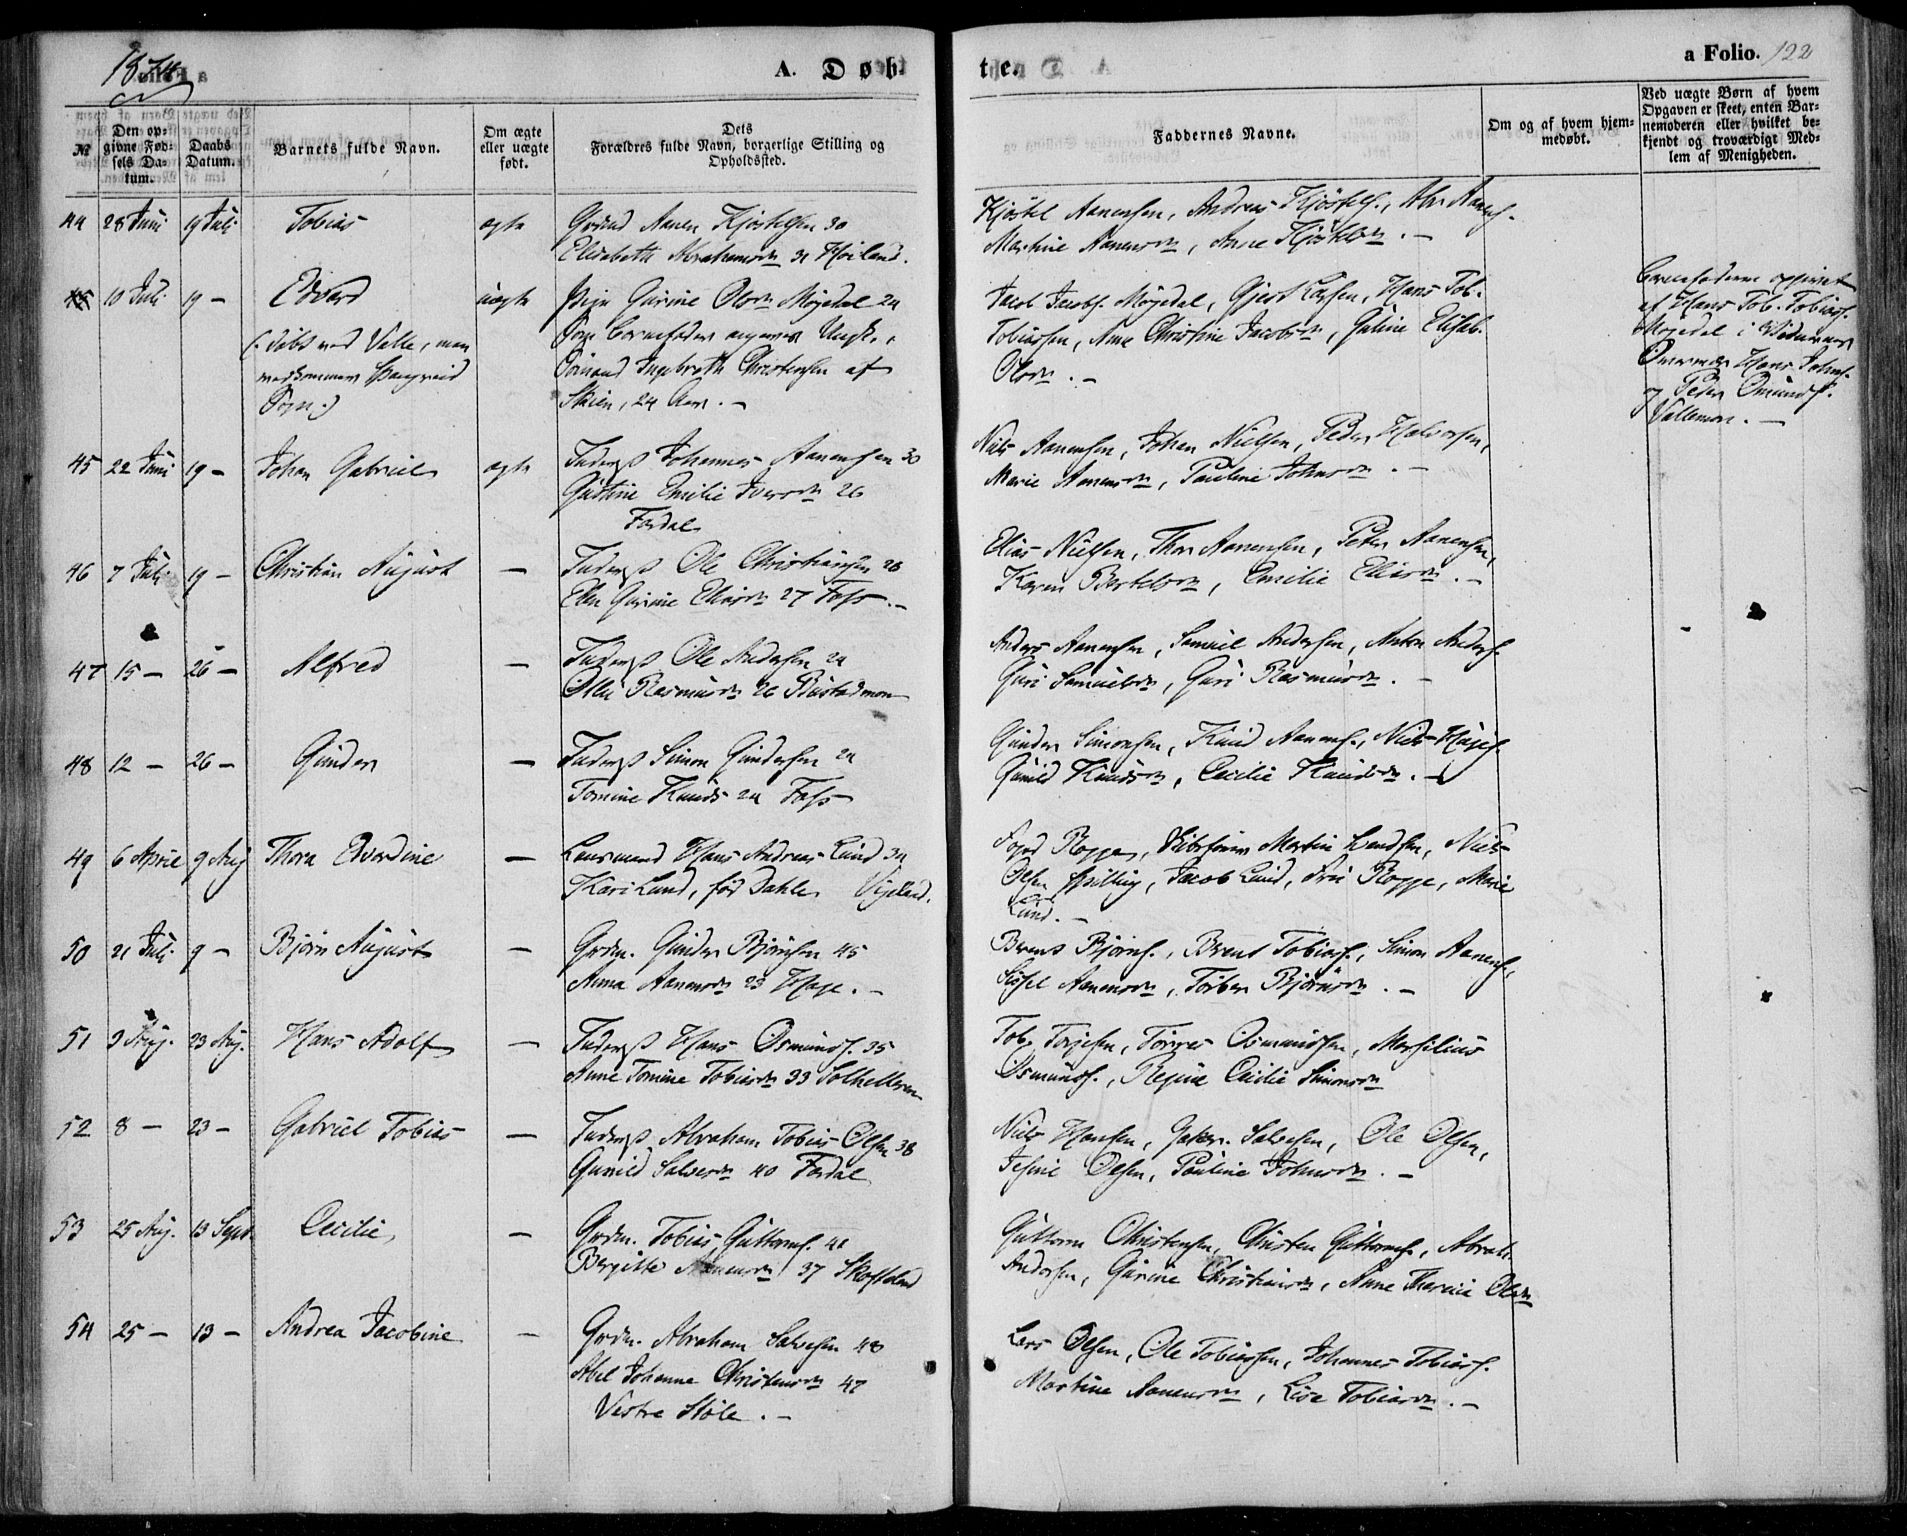 1874
A. Døb-
te.
a Folio. 122
№
Den op-
givne Fød-
sels Da-
tum.
Daabs
Datum.
Barnets fulde Navn.
Om ægte
eller uægte
født.
Dets
Forældres fulde Navn, borgerlige Stilling og
Opholdssted.
Faddernes Navne.
Om og af hvem hjem-
medøbt.
Ved uægte Børn af hvem
Opgaven er skeet, enten Bar-
nemoderen eller hvilket be-
kjendt og troværdigt Med-
lem af Menigheden.
44 28 Juni 19 Juli Tobias ægte Grdmd Aanen Kjøstelsen 30
Elisabeth Abrahamsdr 31 Høiland.
Kjøstel Aanensen, Andreas Kjøstels., Abr Aanens.
Martine Aanensdr, Anne Kjøstelsdr. —
45 10 Juli 19 — Edvard uægte Pige Gurine Olsdr Møgedal 24
(: døbt ved Valle, men
vedkommer Spangereid
Sogn :)
Som Barnefader angives Ungk.,
Sømand Ingebreth Christensen af
Skien, 24 Aar. —
Jacob Jacobs. Møgedal, Gjert Larsen, Hans Tob.
Tobiassen, Ane Christine Jacobsdr, Galine Elisab.
Olsdr. —
Barnefaderen opgivet
af Hans Tob. Tobias.
Møgedal i Vidners
Hans Johns.
og Peder Omunds.
Vallemoen. —
45 22 Juni 19 — Johan Gabriel ægte Inderst Johannes Aanensen 30
Gustine Emilie Iversdr 26
Fardal
Niels Aanensen, Johan Nielsen, Peder Halvorsen,
Marie Aanensdr, Pauline Johnsdr. —
46 7 Juli 19 — Christian August — Inderst Ole Christiansen 28
Ellen Gurine Eliasdr 27 Foss. —
Elias Nielsen, Thor Aanensen, Peter Aanensen,
Karen Bertelsdr, Emilie Eliasdr. —
47 15 — 26 — Alfred — Inderst Ole Andersen 24
Rasmusdr 26 Bustadmoen
Anders Aanensen, Samuel Andersen, Anton Anders.
Guri Samuelsdr, Guri Rasmusdr. —
48 12 — 26 — Gunder — Inderst Simon Gundersen 24
Tomine Knuds 24 Foss
Gunder Simonsen, Knud Aanens., Niels
Gunild Knudsdr, Cecilie Knudsdr. —
49 6 April 9 Aug Thora Edvardine — Lensmand Hans Andreas Lund 34
Kari Lund, fød Dahle Vigeland.
Foged Roppe, Martin Lundsen, Niels
Olsen Spilling, Jacob Lund, Fru Roppe, Marie
Lund. —
50 21 Juli 9 — Bjørn August — Grdm. Gunder Bjørnsen 45
Anna Aanensdr 23 Hage. —
Bernt Bjørns., Brent Tobias., Simon Aanens.,
Sissel Aanensdr, Torbor Bjørnsdr. —
51 3 Aug. 23 Aug. Hans Adolf — Inderst Hans Osmunds. 35
Anne Tomine Tobiasdr 33 Solhelleren
Tob. Torjesen, Tørres Osmundsen, Marsilius
Osmunds., Regine Cecilie Simonsdr
52 8 — 23 — Gabriel Tobias — Inderst Abraham Tobias Olsen 38
Gunild Salvesdr 40 Fardal
Niels Hansen, Salvesen, Ole Olsen,
Josine Olsen, Pauline Johnsdr. —
53 25 Aug. 13 Sept. Cecilie — Grdm. Tobias Guttorms. 41
Bergitte Aanensdr 37 Skofteland
Guttorm Christensen, Christen Guttorms., Abrah.
Andersen, Gurine Christiansdr, Anne Oline Olsdr
54 25 — 13 — Andrea Jacobine — Grdm. Abraham Salvesen 48
Abel Johanne Christensdr 47
Vestre Støle. —
Lars Olsen, Ole Tobiassen, Johannes Tobias.
Martine Aanensdr, Lise Tobiasdr. —